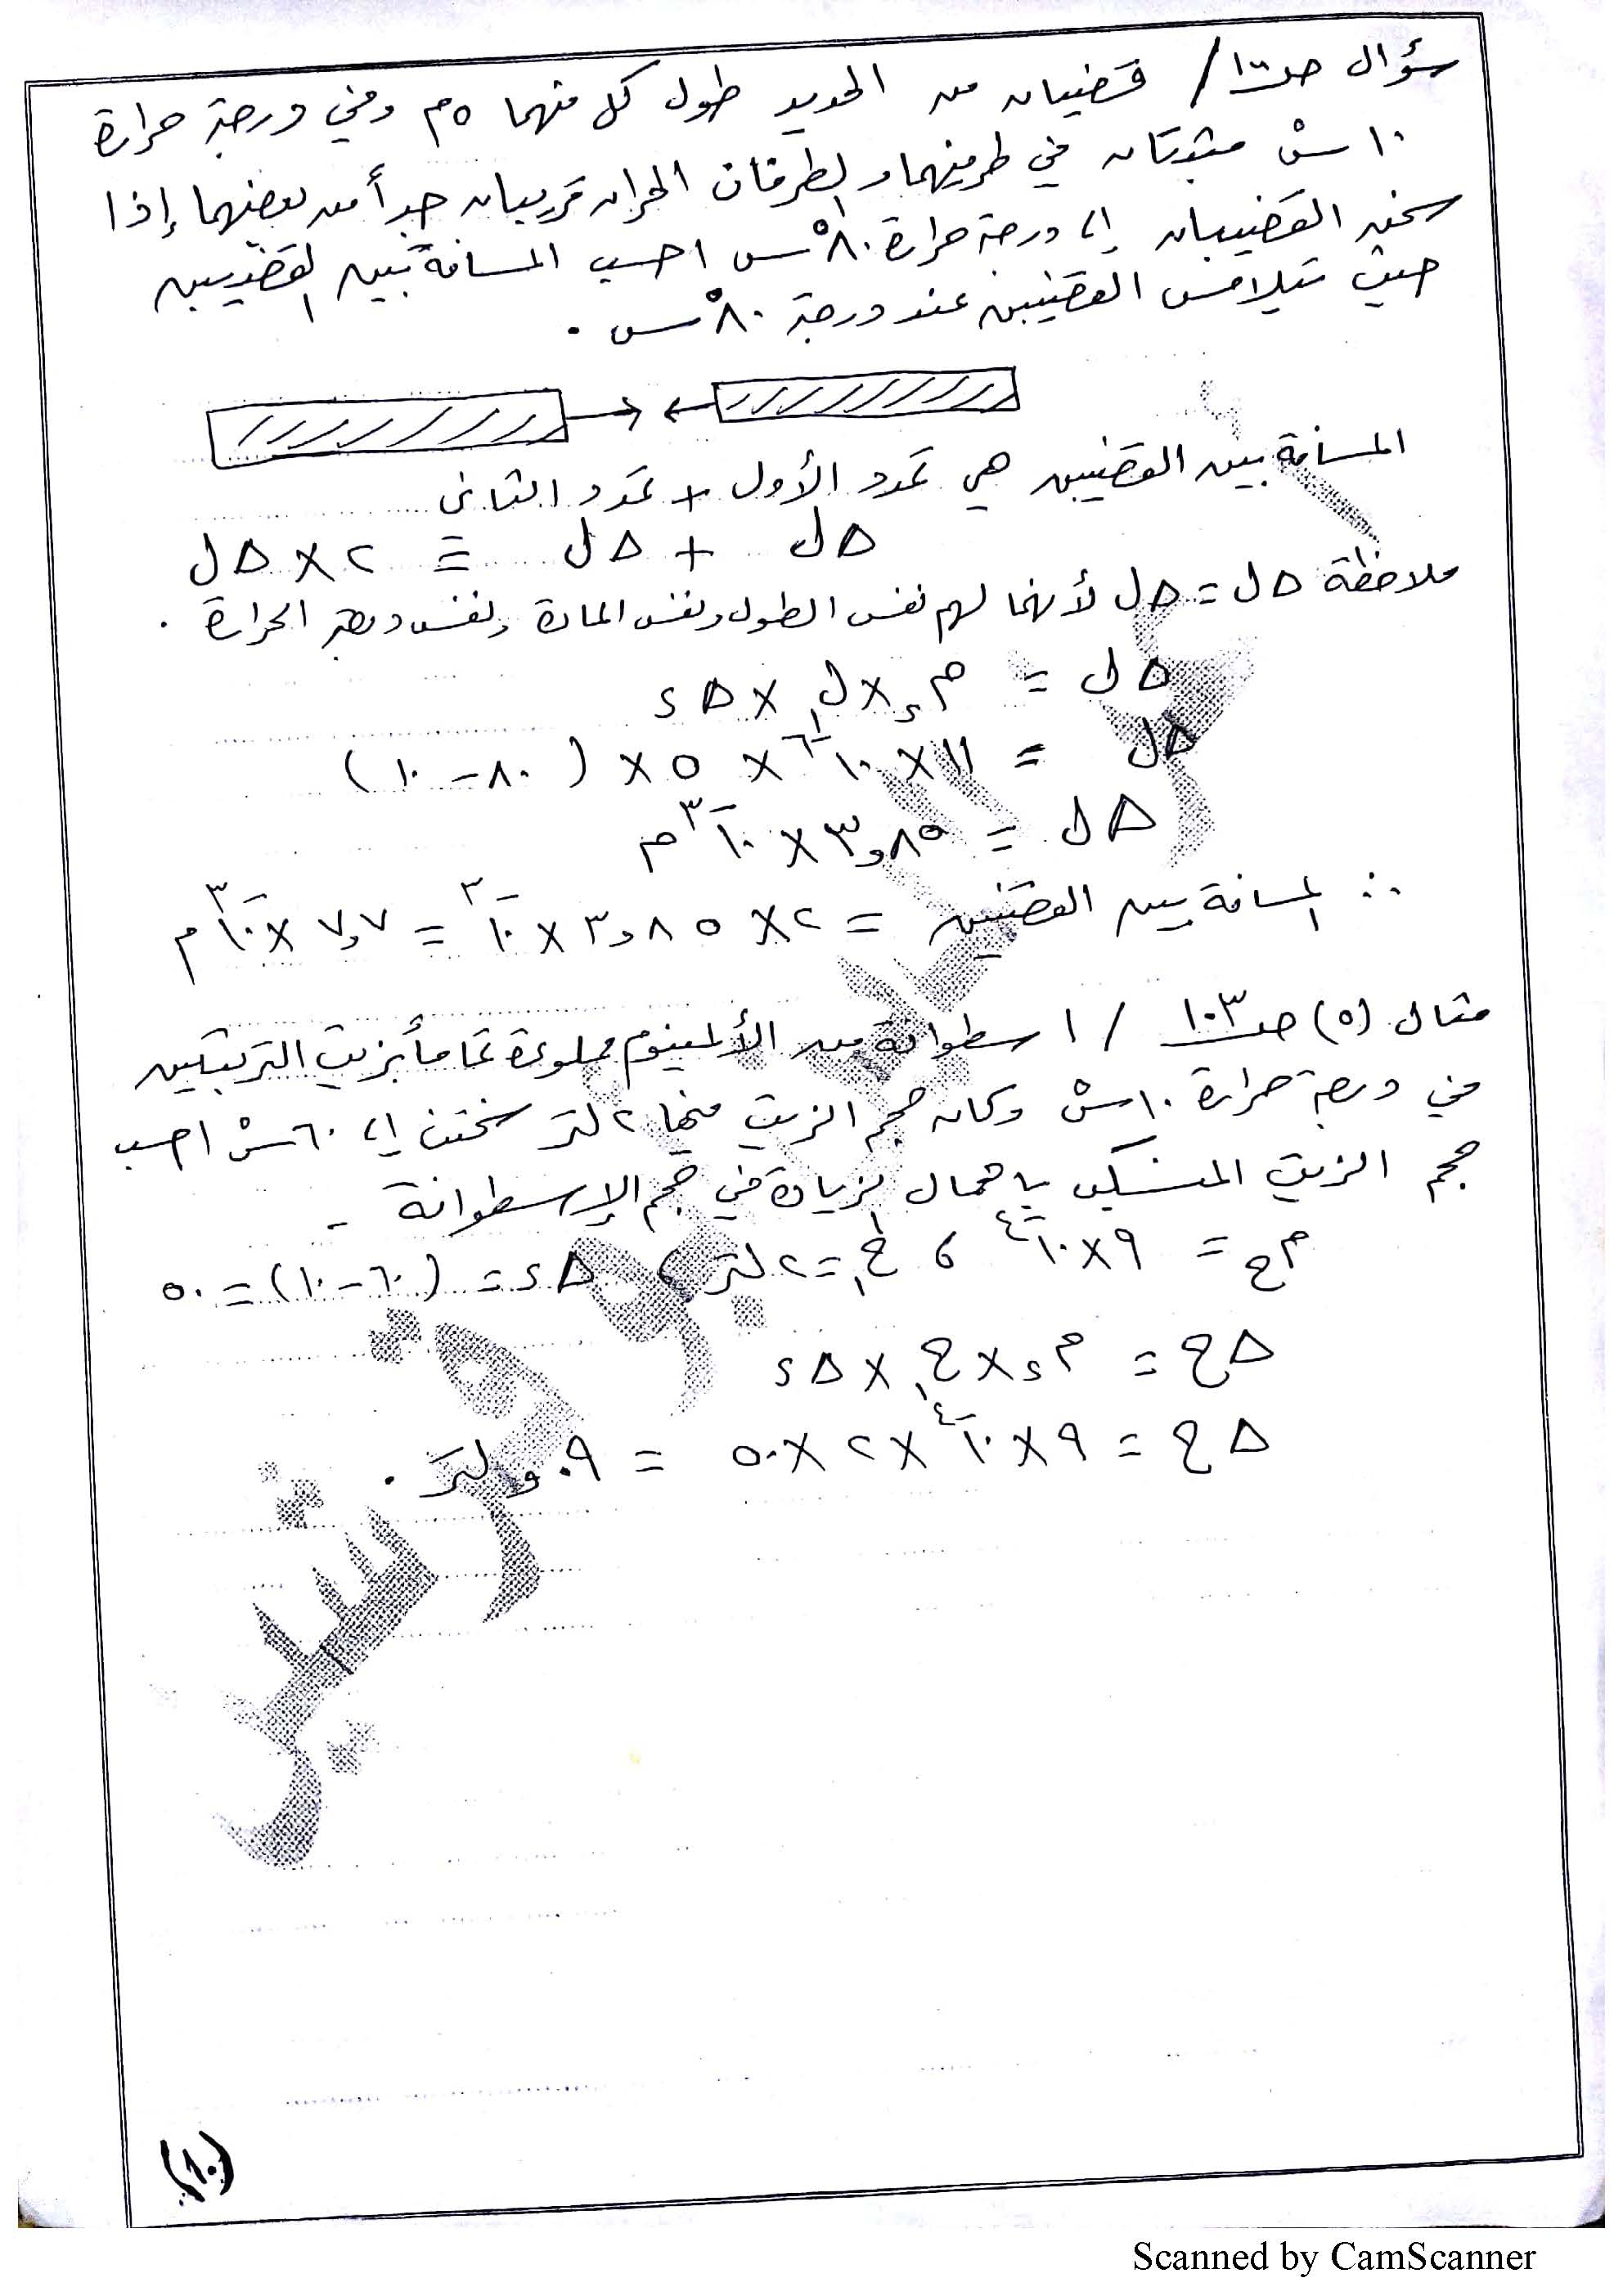 سؤال صـ١٠٠/ قضيبان من الحديد طول كل منهما ٥م وفي درجة حرارة
١٠ سْ مثبتان في طرفيهما والطرفان الحران قريبان جداً من بعضهما إذا
سخن القضيبان إلى درجة حرارة ٨٠ْس احسب المسافة بين القضيبين
حيث يتلامس القضيبين عند درجة ٨٠ْس .
المسافة بين القضيبين هي تمدد الأول + تمدد الثاني
Δل + Δل = ٢ × Δل
ملاحظة Δل = Δل لأنهما لهم نفس الطول ونفس المادة ونفس درجة الحرارة .
Δل = م د × ل١ × Δد
Δل = ١١ × ١٠^-٦ × ٥ × (٨٠ - ١٠)
Δل = ٣,٨٥ × ١٠^-٣ م
∴ المسافة بين القضيبين = ٢ × ٣,٨٥ × ١٠^-٣ = ٧,٧ × ١٠^-٣ م
مثال (٥) صـ١٠٣ / اسطوانة من الألمينوم مملوءة تماماً بزيت التربنتين
في درجة حرارة ١٠سْ وكان حجم الزيت فيها ٢ لتر سخنت إلى ٦٠سْ احسب
حجم الزيت المنسكب بإهمال الزيادة في حجم الإسطوانة .
م ح = ٩ × ١٠^-٤ ، ح١ = ٢ لتر ، Δد = (٦٠ - ١٠) = ٥٠
Δح = م د × ح١ × Δد
Δح = ٩ × ١٠^-٤ × ٢ × ٥٠ = ٠,٠٩ لتر .
(١٠)
Scanned by CamScanner